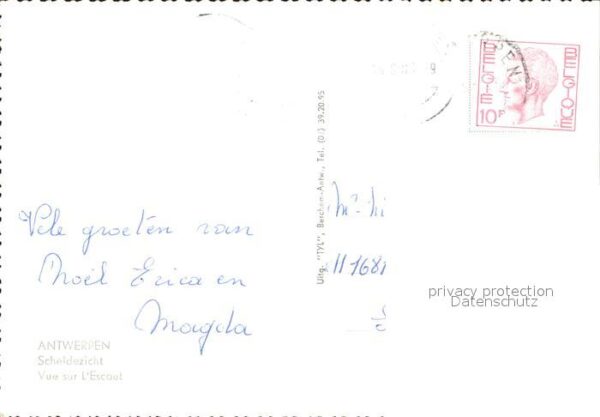 Vele groeten van
Noël Erica en
Magda
ANTWERPEN
Scheldezicht
Vue sur L'Escaut
Uitg. "TYL", Berchem-Antw., Tel. (03) 39.20.95
BELGIE BELGIQUE
10F
privacy protection
Datenschutz